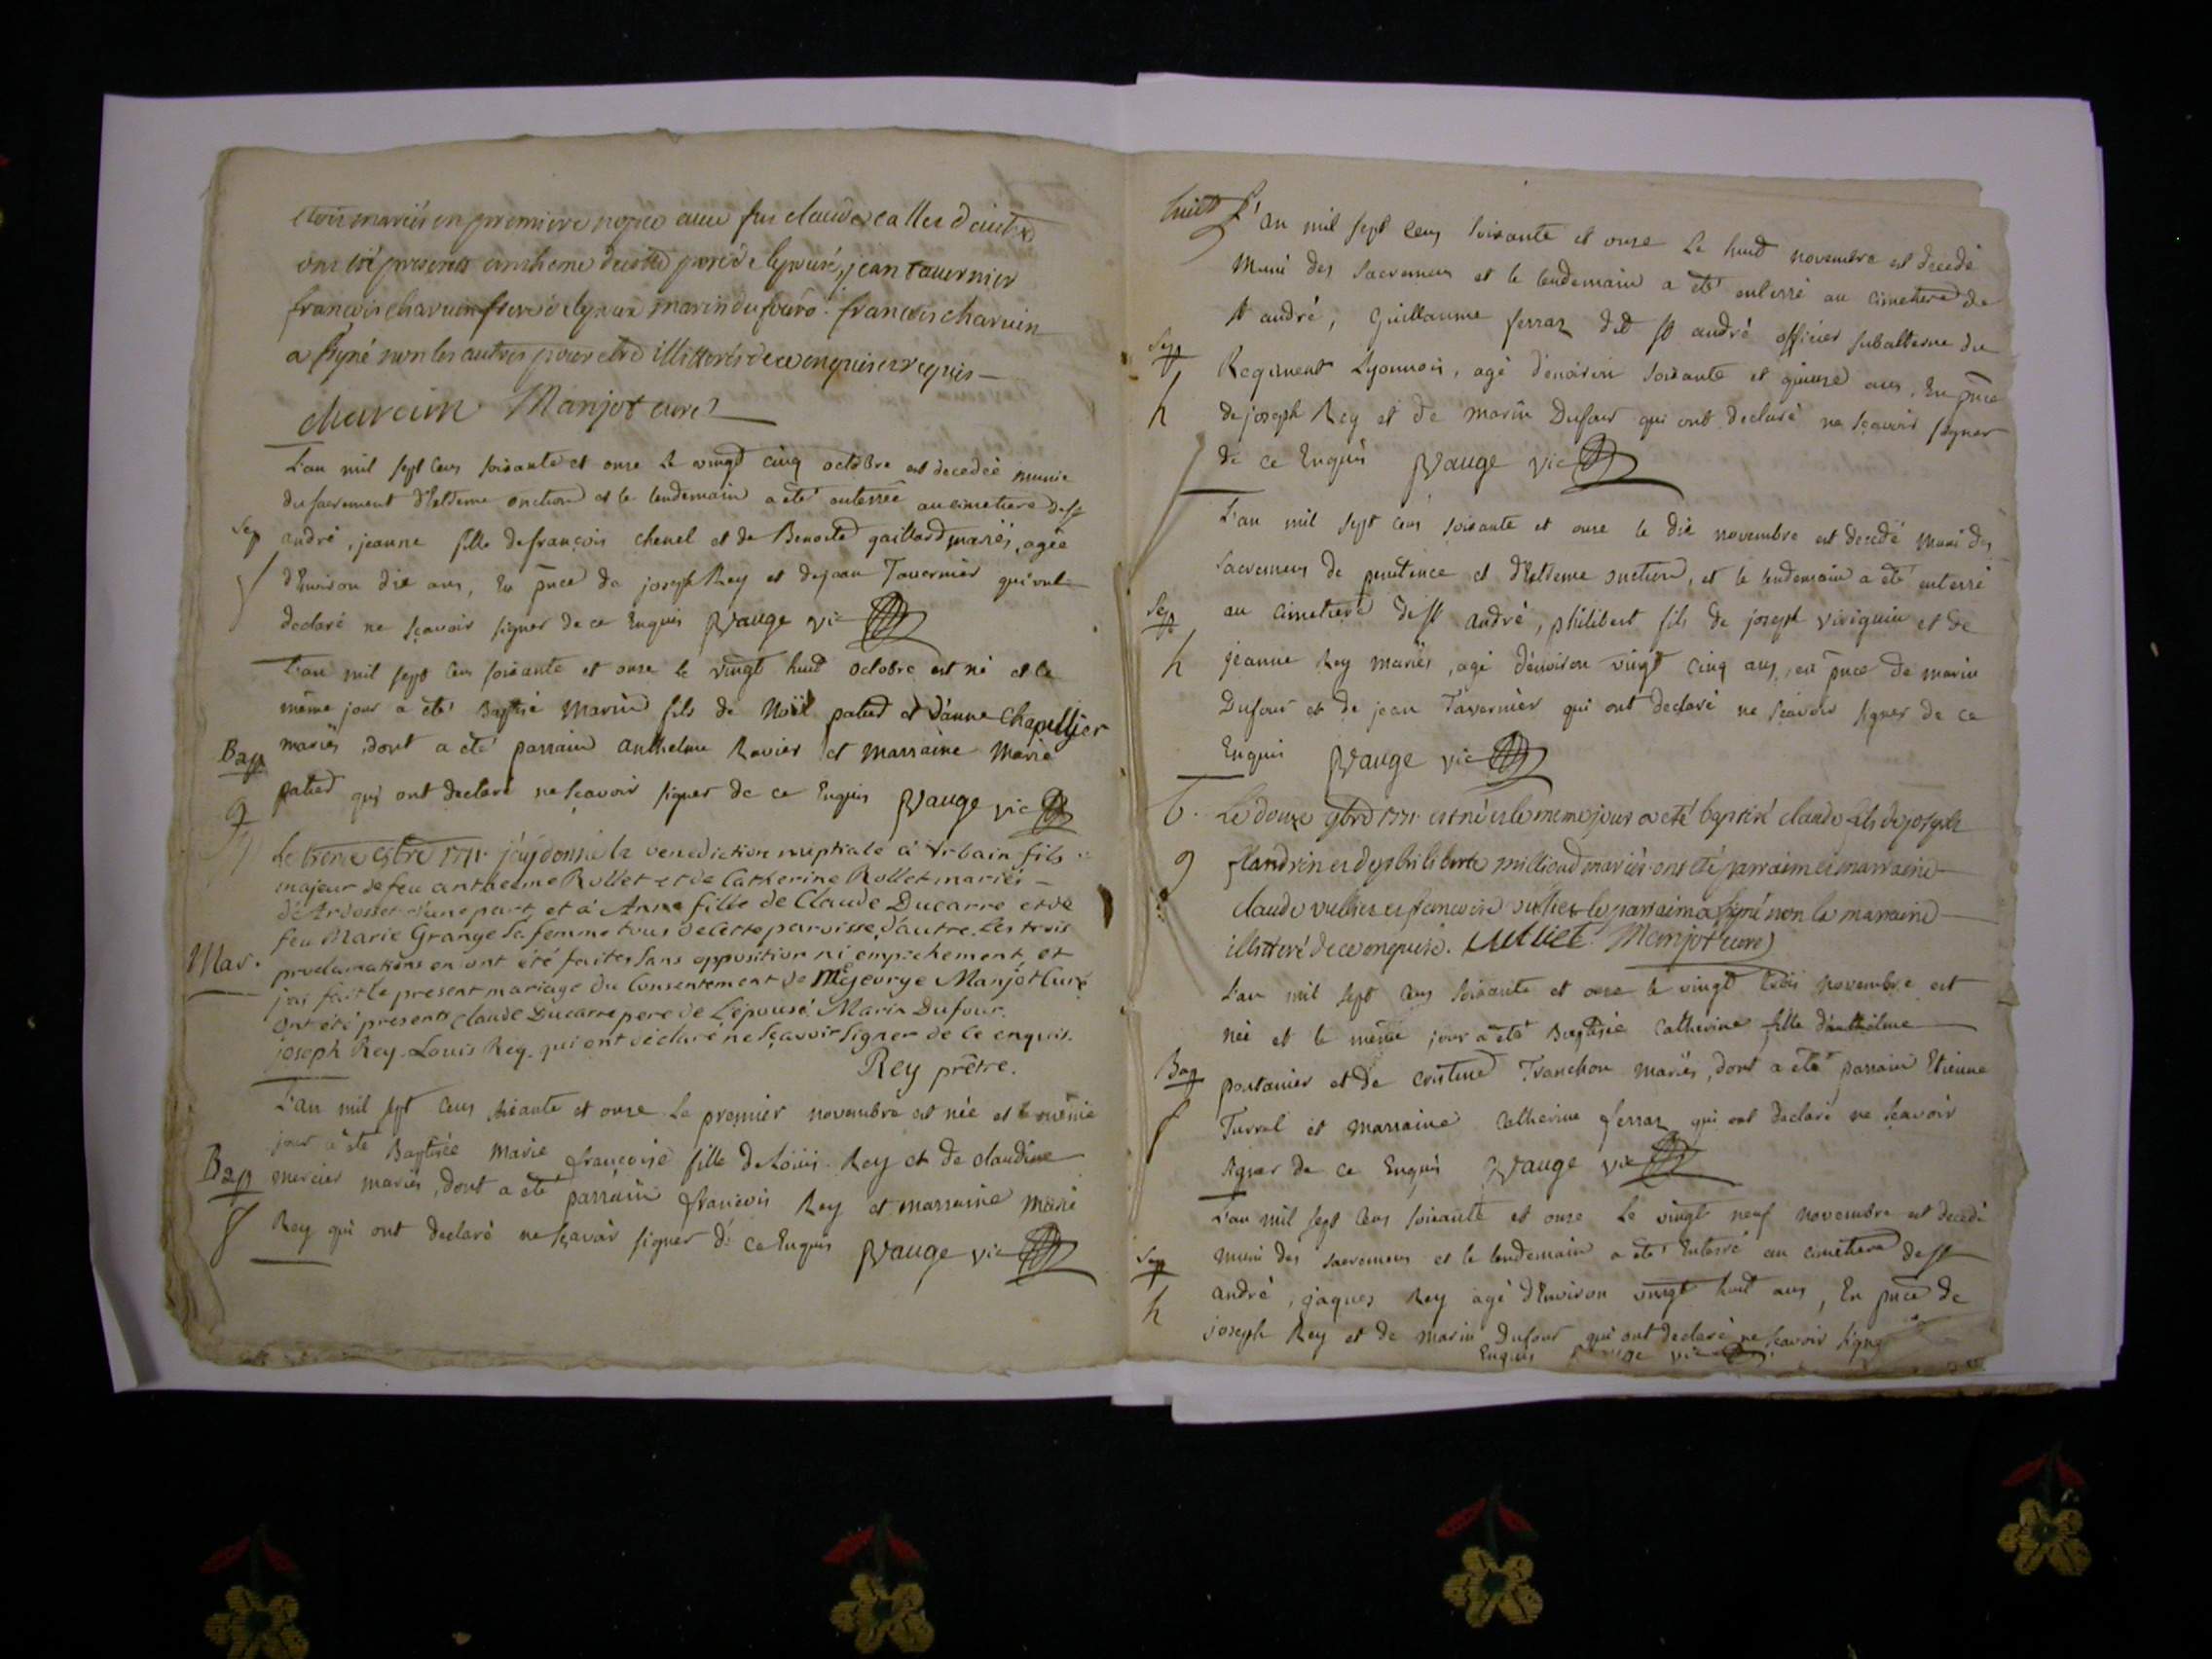 mariés en premiere noces avec feu claude
ont été presents anthelme pere de lepousé, jean tavernier
françois charvin frere de lepoux marin dufour. françois charvin
a signé non les autres pour etre illitterés de ce enquis et requis
charvin Manjot curé
L'an mil sept cens soixante et onze le vingt cinq octobre est decedée munie
du sacrement d'Extreme onction et le lendemain a été enterrée au cimetiere de st
Sep andré, jeanne fille de françois chenel et de Benoite gaillard mariés, agée
f d'Environ dix ans, En pnce de joseph Rey et de jean Tavernier qui ont
declaré ne sçavoir signer de ce Enquis Vauge vic
L'an mil sept cens soixante et onze le vingt huit octobre est né et le
même jour a été Baptisé Marin fils de Noël patud et d'anne Chapellier
Bap mariés, dont a été parrain anthelme Ravier et marraine Marie
g patud qui ont declaré ne sçavoir signer de ce Enquis Vauge vic
Le trente 1771. j'ay donné la benediction nuptiale à Urbain fils
majeur de feu anthelme Rollet et de Catherine Rollet mariés
d'Ardosset d'une part et à Anne fille de Claude Ducarre et de
feu Marie Grange sa femme tous de cette paroisse, d'autre. Les trois
Mar. proclamations en ont été faites sans opposition ni empêchement, et
j'ai fait le present mariage du Consentement de Mr george Manjot Curé
Ont été presents Claude Ducarre pere de L'épousé. Marin Dufour.
joseph Rey. Louis Rey. qui ont déclaré ne sçavoir signer de ce enquis.
Rey prêtre.
L'an mil sept cens soixante et onze Le premier novembre est née et le même
jour a été Baptisée Marie françoise fille de Loüis Rey et de claudine
Bap mercier mariés, dont a été parrain françois Rey et marraine Marie
f Rey qui ont declaré ne sçavoir signer de ce Enquis Vauge vic
huit L'an mil sept cens soixante et onze Le huit novembre est decedé
Muni des Sacremens et le lendemain a été enterré au cimetiere de
st andré, Guillaume ferraz dit st andré officier subalterne du
Sep Regiment Lyonnois, agé d'environ soixante et quinze ans, En pnce
h de joseph Rey et de marin Dufour qui ont declaré ne sçavoir signer
de ce Enquis Vauge vic
L'an mil sept cens soixante et onze le dix novembre est decedé muni des
Sacremens de penitence et d'Extreme onction, et le lendemain a été enterré
Sep au cimetiere de st andré, philibert fils de joseph viriguin et de
h jeanne Rey mariés, agé d'environ vingt cinq ans, en pnce de marin
Dufour et de jean Tavernier qui ont declaré ne sçavoir signer de ce
Enquis Vauge vic
b. Le douze 9bre 1771 est né et le meme jour a eté baptisé claude fils de joseph
g flandrin et de philiberte milliand mariés ont été parrain et marraine
claude vulliet et francoise vulliet le parrain a signé non la marraine
illitteré de ce enquise. vulliet Manjot curé
L'an mil sept cens soixante et onze le vingt trois novembre est
née et le même jour a été Baptisée Catherine fille d'anthelme
Bap pontanier et de cristine Tranchon mariés, dont a été parrain Etienne
f Turrel et marraine Catherine ferraz qui ont declaré ne sçavoir
signer de ce Enquis Vauge vic
L'an mil sept cens soixante et onze Le vingt neuf novembre est decedé
Sep muni des sacremens et le lendemain a été Enterré au cimetiere de st
h andré, jaques Rey agé d'Environ vingt huit ans, En pnce de
joseph Rey et de marin Dufour qui ont declaré ne sçavoir signer
Enquis Vauge vic